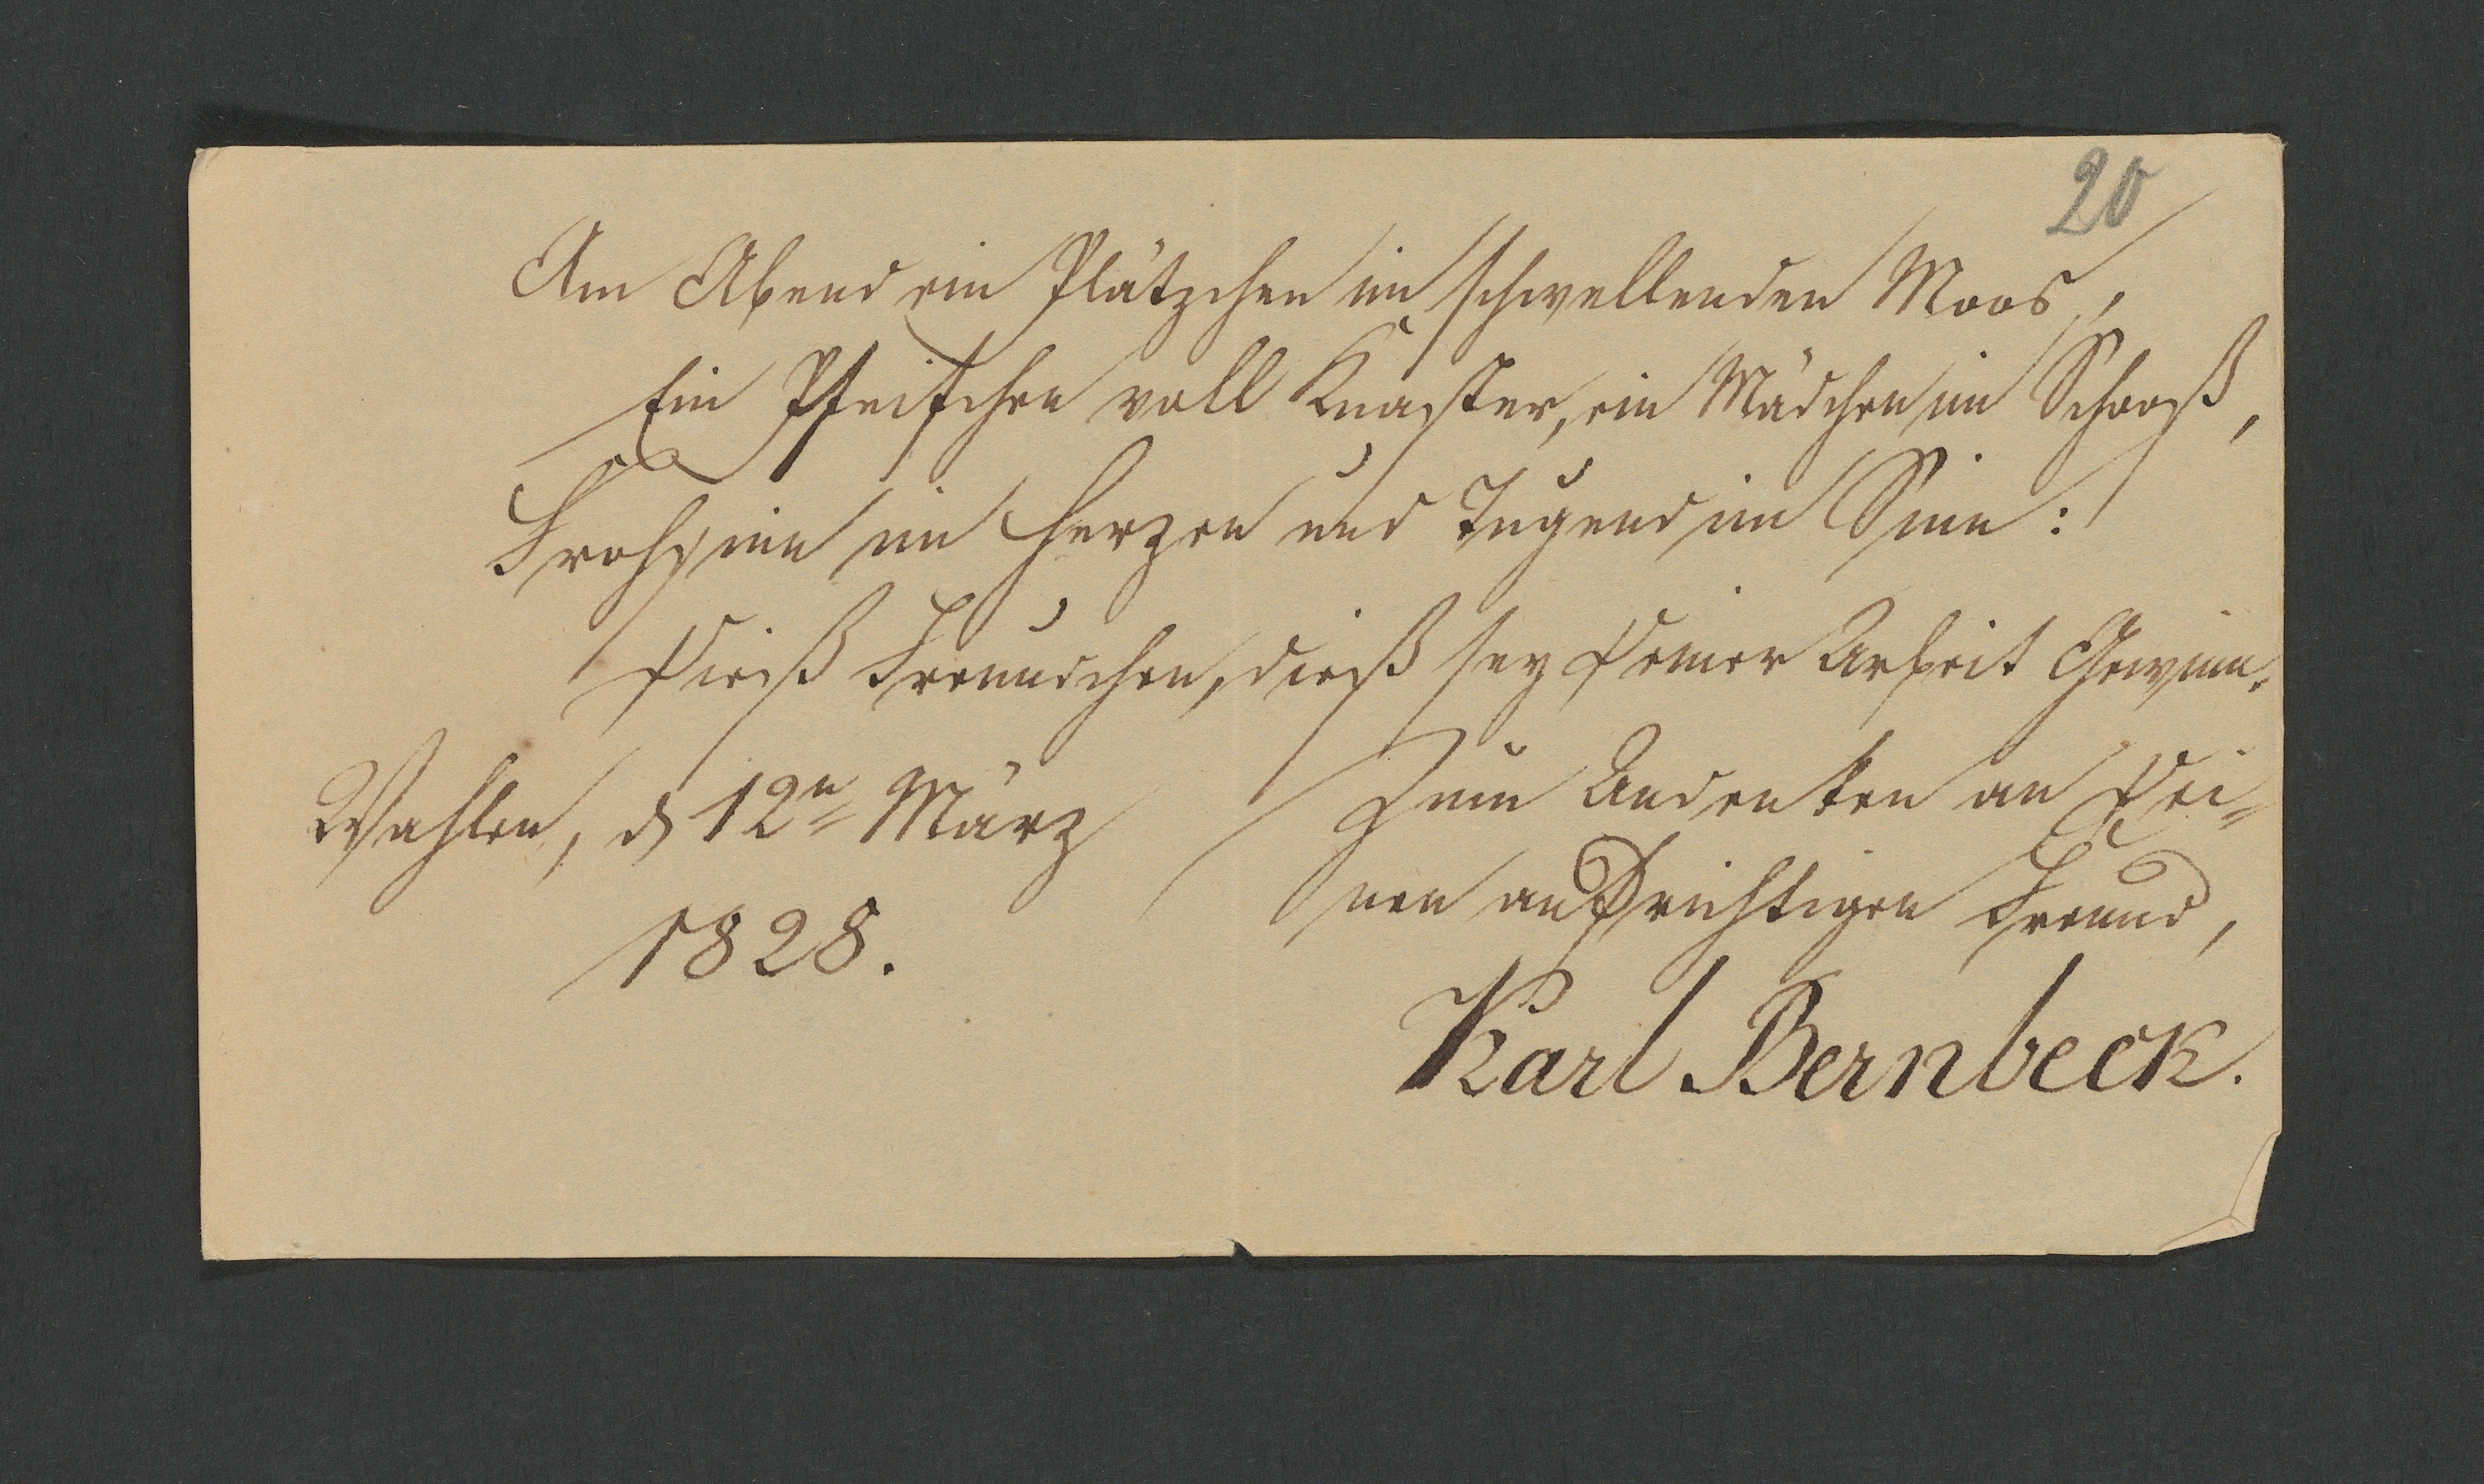 20
Am Abend ein Plätzchen im schwellenden Moos,
Ein Pfeifchen voll Knaster, ein Mädchen im Schooß,
Frohsinn im Herzen und Tugend im Sinn:
Dieß Freundchen, dieß sey Deiner Arbeit Gewinn.
Wahlen, d 12n März
1828.
Zum Andenken an Dei=
nen aufrichtigen Freund,
Karl Bernbeck.